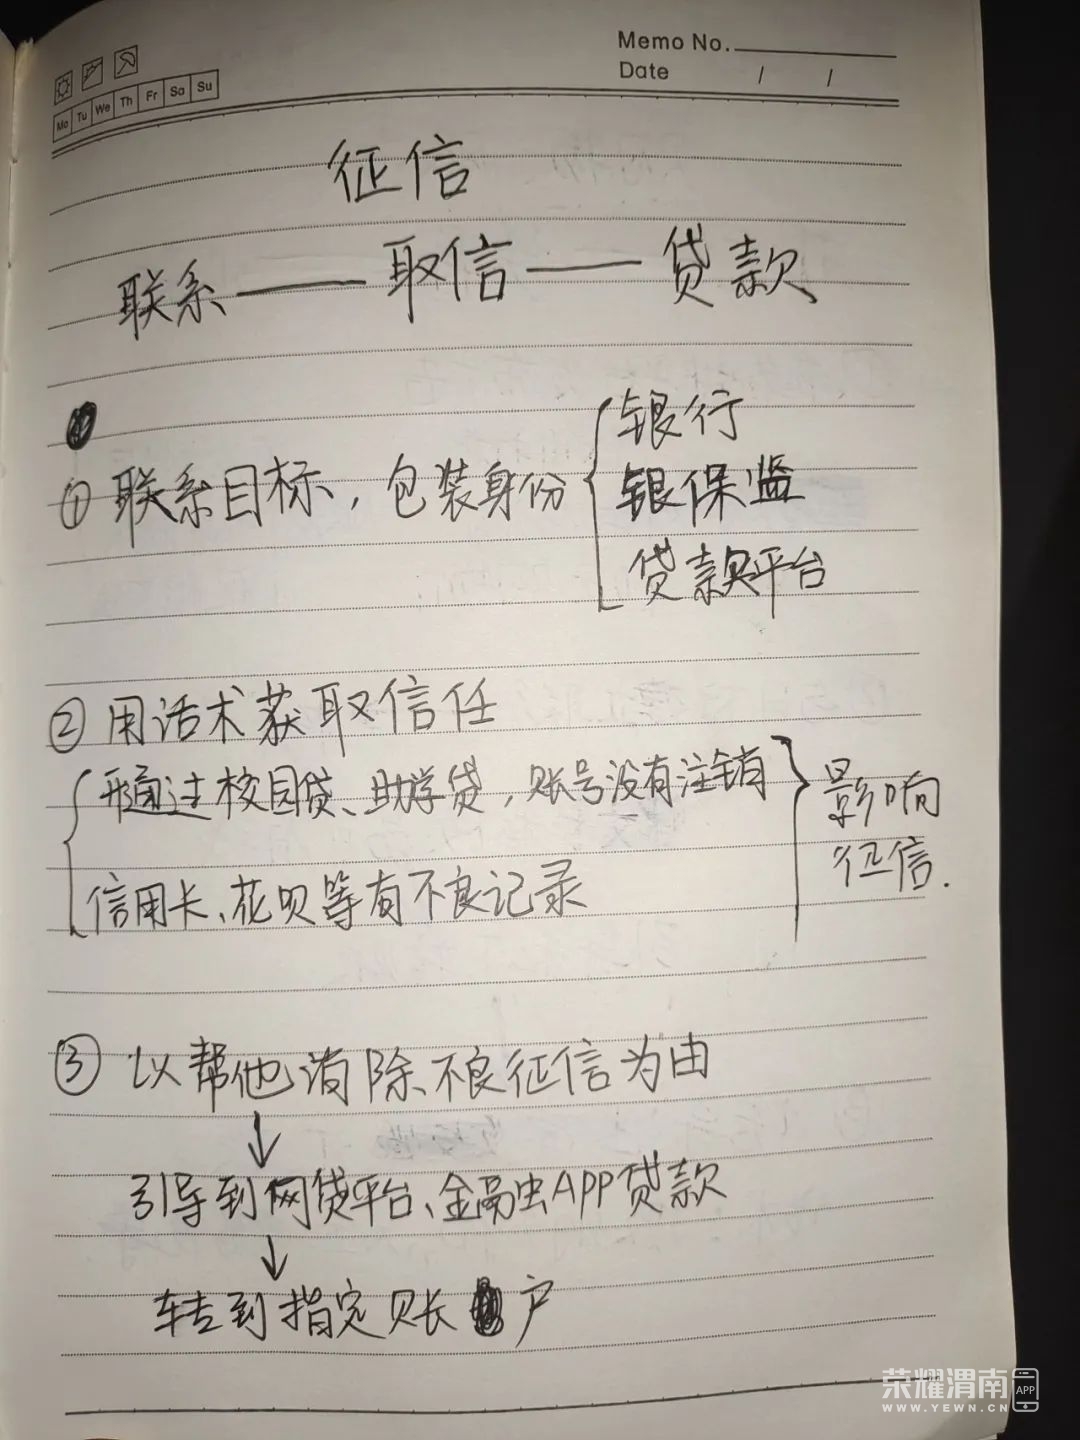 Memo No.
Date / /
Mo Tu We Th Fr Sa Su
征信
联系——取信——贷款
①联系目标，包装身份
银行
银保监
贷款平台
②用话术获取信任
通过校园贷、助学贷，账号没有注销
信用卡、花呗等有不良记录
影响
征信.
③以帮他消除不良征信为由
↓
引导到网贷平台、金融APP贷款
↓
转到指定账户
荣耀渭南APP
WWW.YEWN.CN